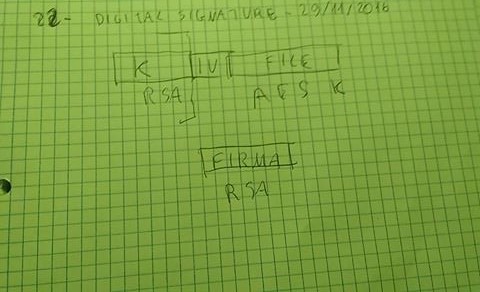 22- DIGITAL SIGNATURE - 29/11/2016
K IV FILE
RSA AES K
FIRMA
RSA